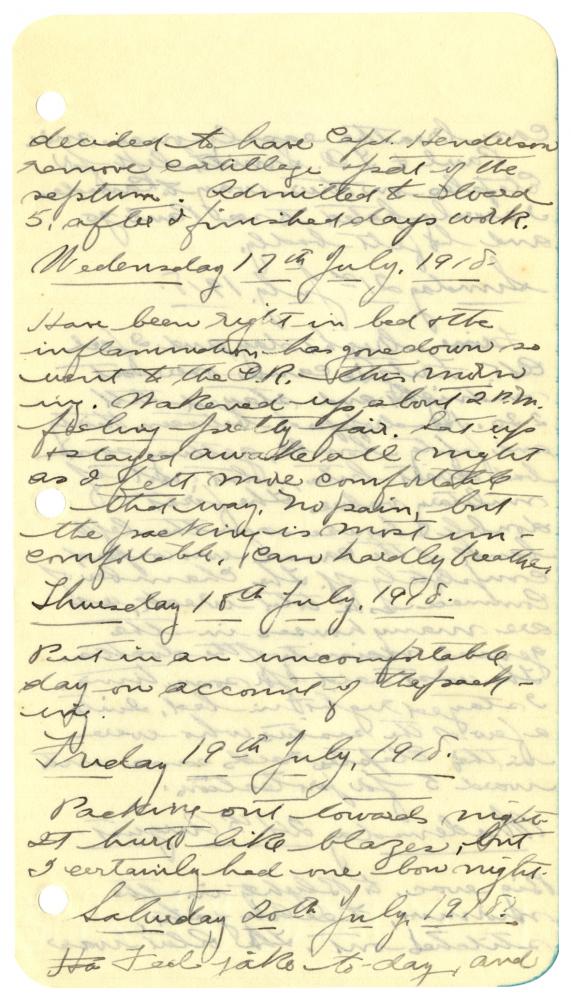 decided to have Capt. Henderson
remove cartillage part of the
septum. Admitted to Ward
5. after I finished days work.
Wedensday 17th July, 1918.
Have been right in bed & the
inflammation has gone down so
went to the O.R. this morn
ing. Wakened up about 2 P.M.
feeling pretty fair. Sat up
& stayed awake all night
as I felt more comfortable
that way. No pain, but
the packing is most un-
comfortable, can hardly breathe.
Thursday 18th July, 1918.
Put in an uncomfortable
day on account of the pack-
ing.
Friday 19th July, 1918.
Packing out towards night.
It hurt like blazes, but
I certainly had one bon night.
Saturday 20th July, 1918.
Ha Feel jake to-day, and